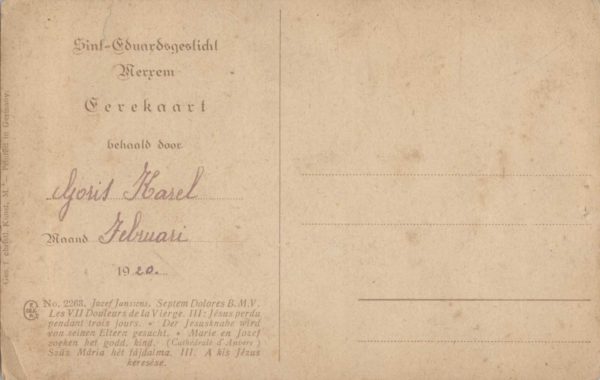 Sint-Eduardsgesticht
Merxem
Eerekaart
behaald door
Goris Karel
Maand Februari
1920.
No. 2268. Jozef Janssens. Septem Dolores B.M.V.
Les VII Douleurs de la Vierge. III: Jésus perdu
pendant trois jours. * Der Jesusknabe wird
von seinen Eltern gesucht. * Marie en Jozef
zoeken het godd. kind. (Cathédrale d'Anvers)
Szűz Mária hét fájdalma. III. A kis Jézus
keresése.
Ges. f. christl. Kunst, M. — Printed in Germany.